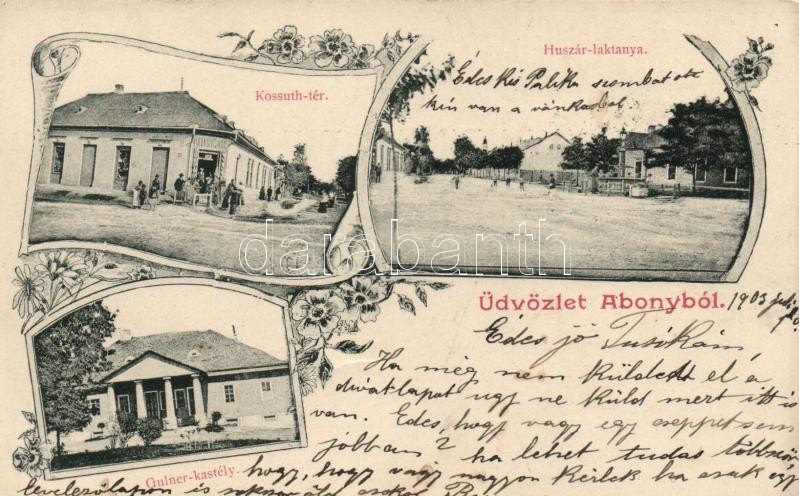 Kossuth-tér.
Huszár-laktanya.
Édes kis Palika szombat ota
kin van a
darabanth
Üdvözlet Abonyból. 1903
Gulner-kastély.
Édes jó Tusikám,
Ha még nem küldett el a
divatlapot ugy ne küld mert itt is
van. Édes, hogy vagy egy cseppet sem
jobban? ha lehet tudas többször
hogy, hogy vagy nagyon kérlek ha csak egy
levelezolapon is